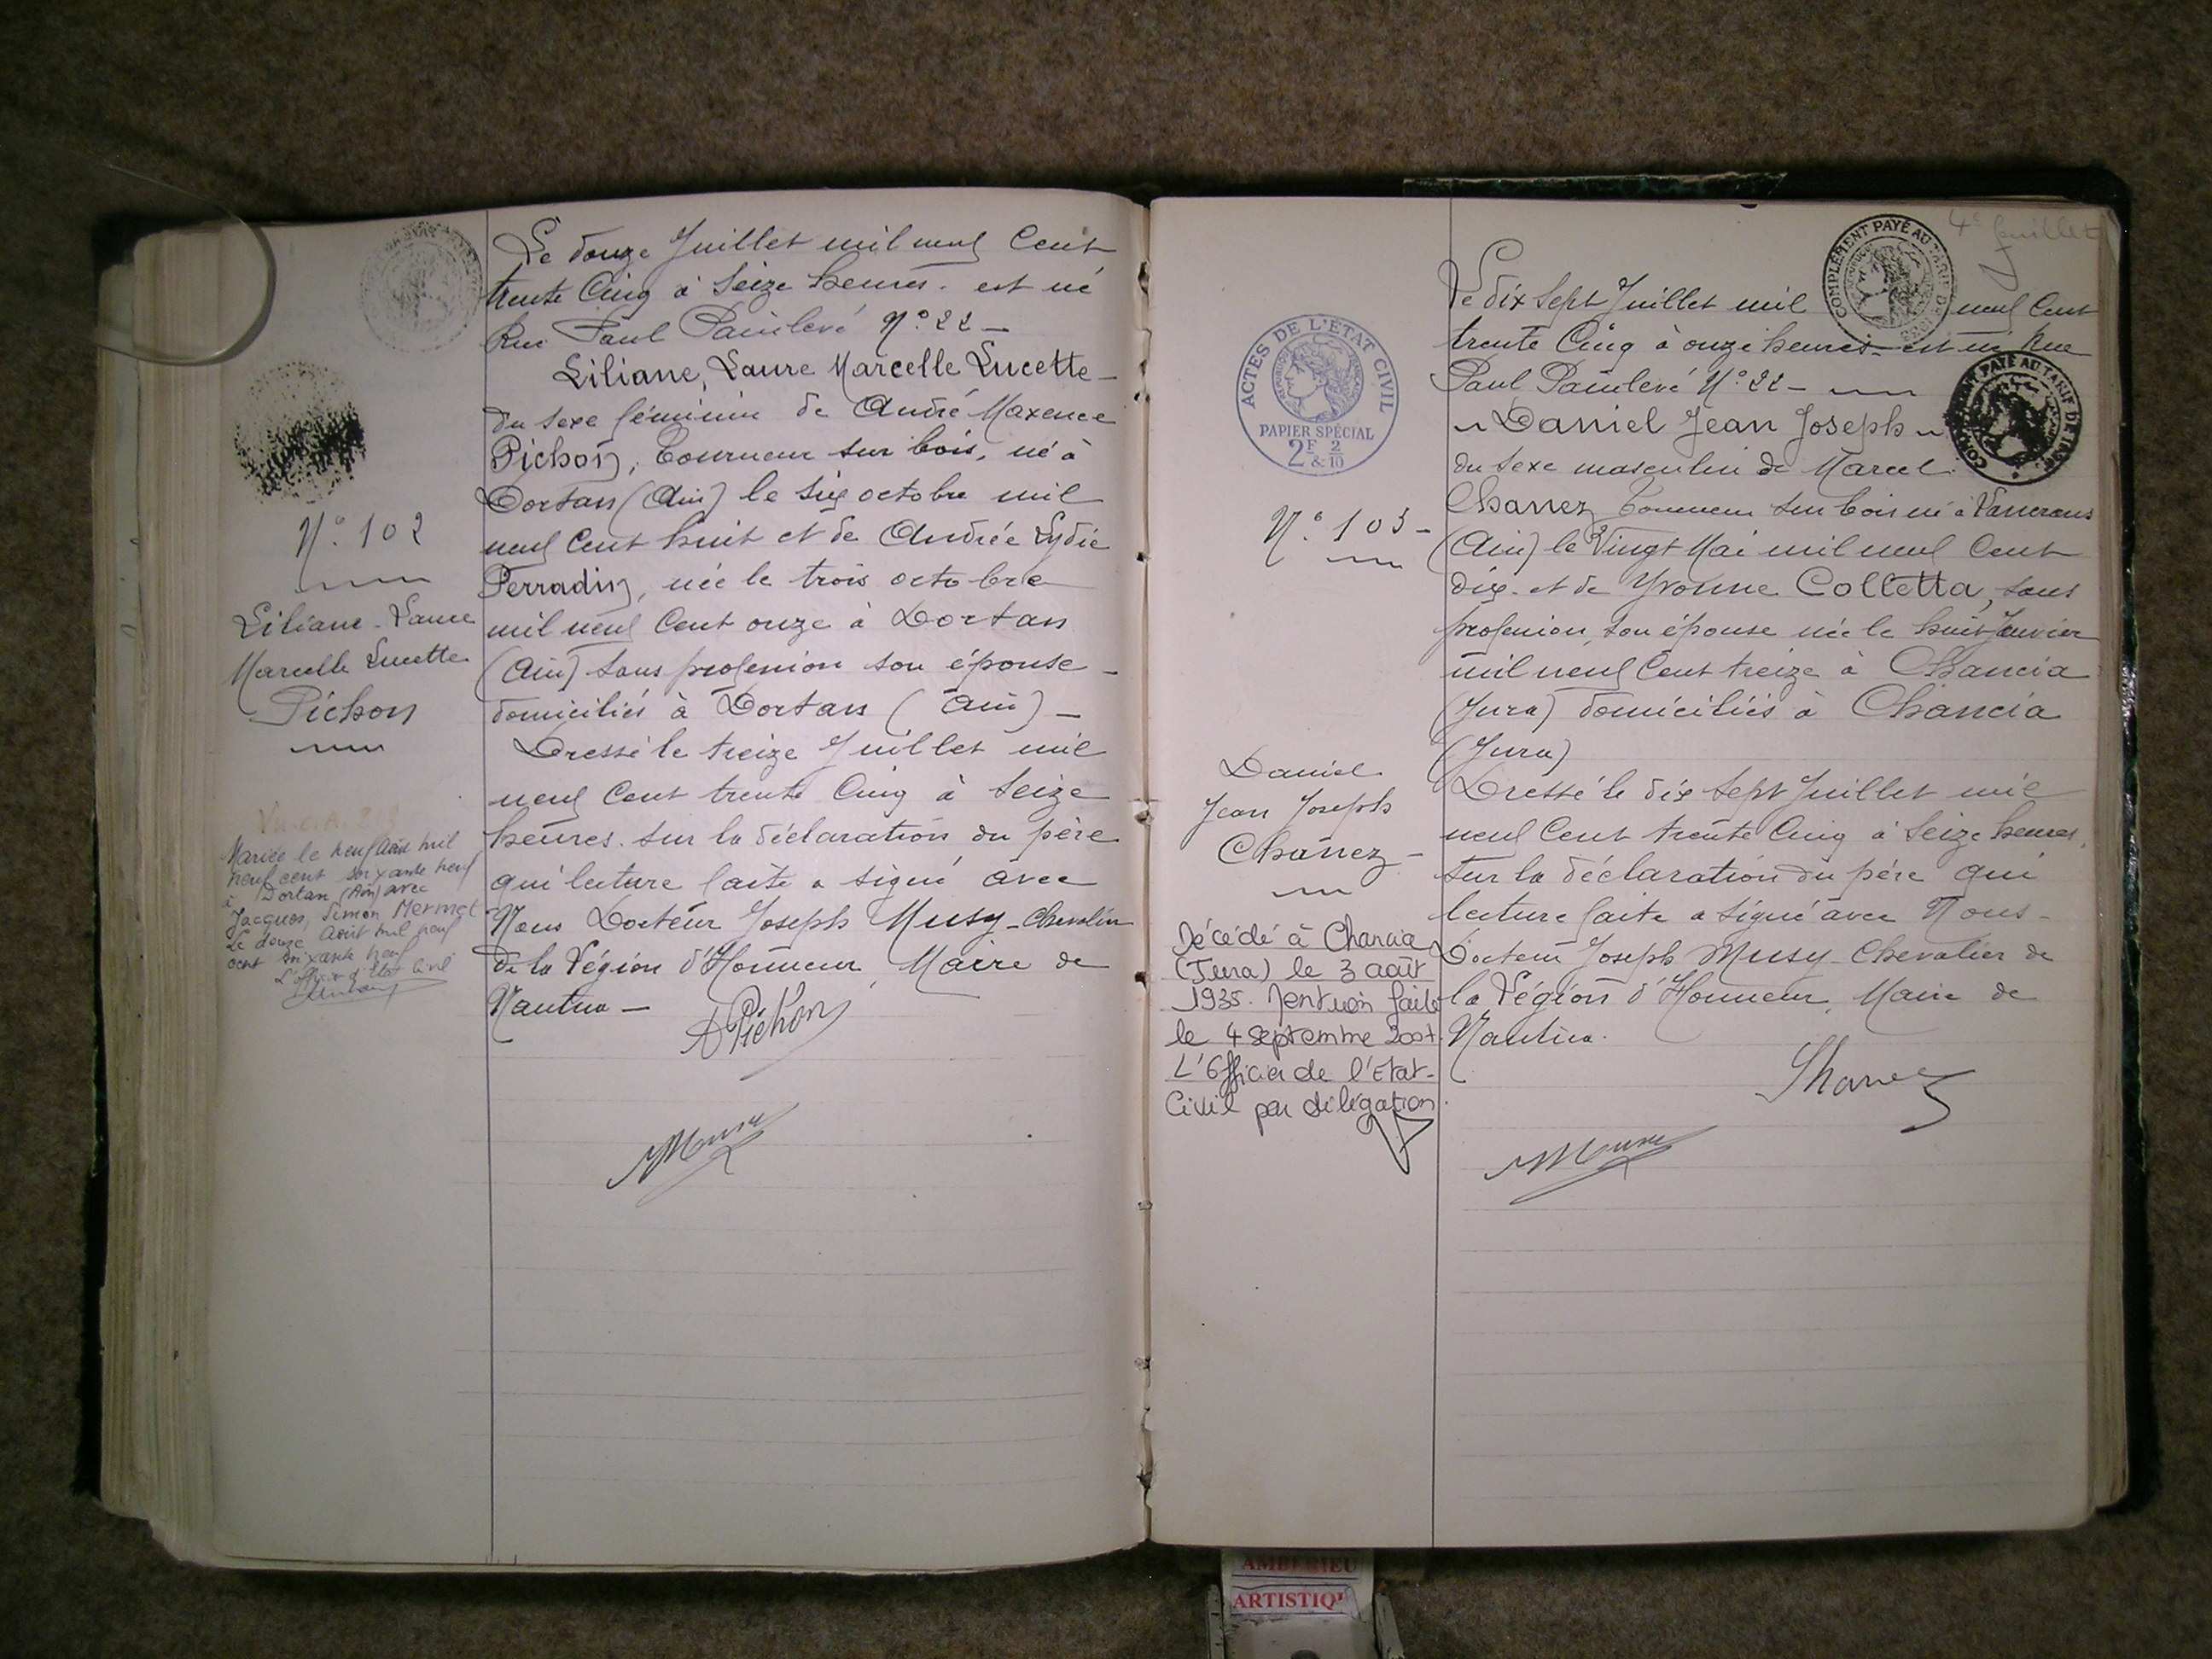 N° 102
Liliane - Laure
Marcelle Lucette
Pichon
Mariée le neuf Août mil
neuf cent soixante neuf
à Dortan (Ain) avec
Jacques, Simon Mermet
Le douze Août mil neuf
cent soixante neuf
L'officier d'Etat Civil
Le douze Juillet mil neuf Cent
trente Cinq à Seize heures. est né
Rue Paul Painlevé N° 22 -
Liliane, Laure Marcelle Lucette -
du sexe féminin de André Maxence
Pichon, Tourneur sur bois, né à
Dortan (Ain) le six octobre mil
neuf Cent huit et de Andrée Lydie
Perradin, née le trois octobre
mil neuf Cent onze à Dortan
(Ain) sans profession son épouse -
domiciliés à Dortan (Ain) -
Dressé le treize Juillet mil
neuf Cent trente Cinq à Seize
heures. sur la déclaration du père
qui lecture faite a signé avec
Nous Docteur Joseph Musy - Chevalier
de la Légion d'Honneur, Maire de
Nantua -
A Pichon
Musy
4e feuillet
COMPLÉMENT PAYÉ AU TARIF DE
ACTES DE L'ÉTAT CIVIL
PAPIER SPÉCIAL
2F & 2/10
N° 103 -
Daniel
Jean Joseph
Chanez -
Décédé à Chancia
(Jura) le 3 août
1935. Mention faite
le 4 septembre 2007.
L'Officier de l'Etat-
Civil par délégation.
Le dix Sept Juillet mil neuf Cent
trente Cinq à onze heures - est né Rue
Paul Painlevé N° 22 -
Daniel Jean Joseph
du sexe masculin de Marcel
Chanez Tourneur sur bois né à
(Ain) le Vingt Mai mil neuf Cent
dix - et de Yvonne Colletta, sans
profession, son épouse née le huit Janvier
mil neuf Cent treize à Chancia
(Jura) domiciliés à Chancia
(Jura)
Dressé le dix Sept Juillet mil
neuf Cent trente Cinq à Seize heures,
sur la déclaration du père qui
lecture faite a signé avec Nous -
Docteur Joseph Musy - Chevalier de
la Légion d'Honneur, Maire de
Nantua.
Chanez
Musy
AMBERIEU
ARTISTIQ